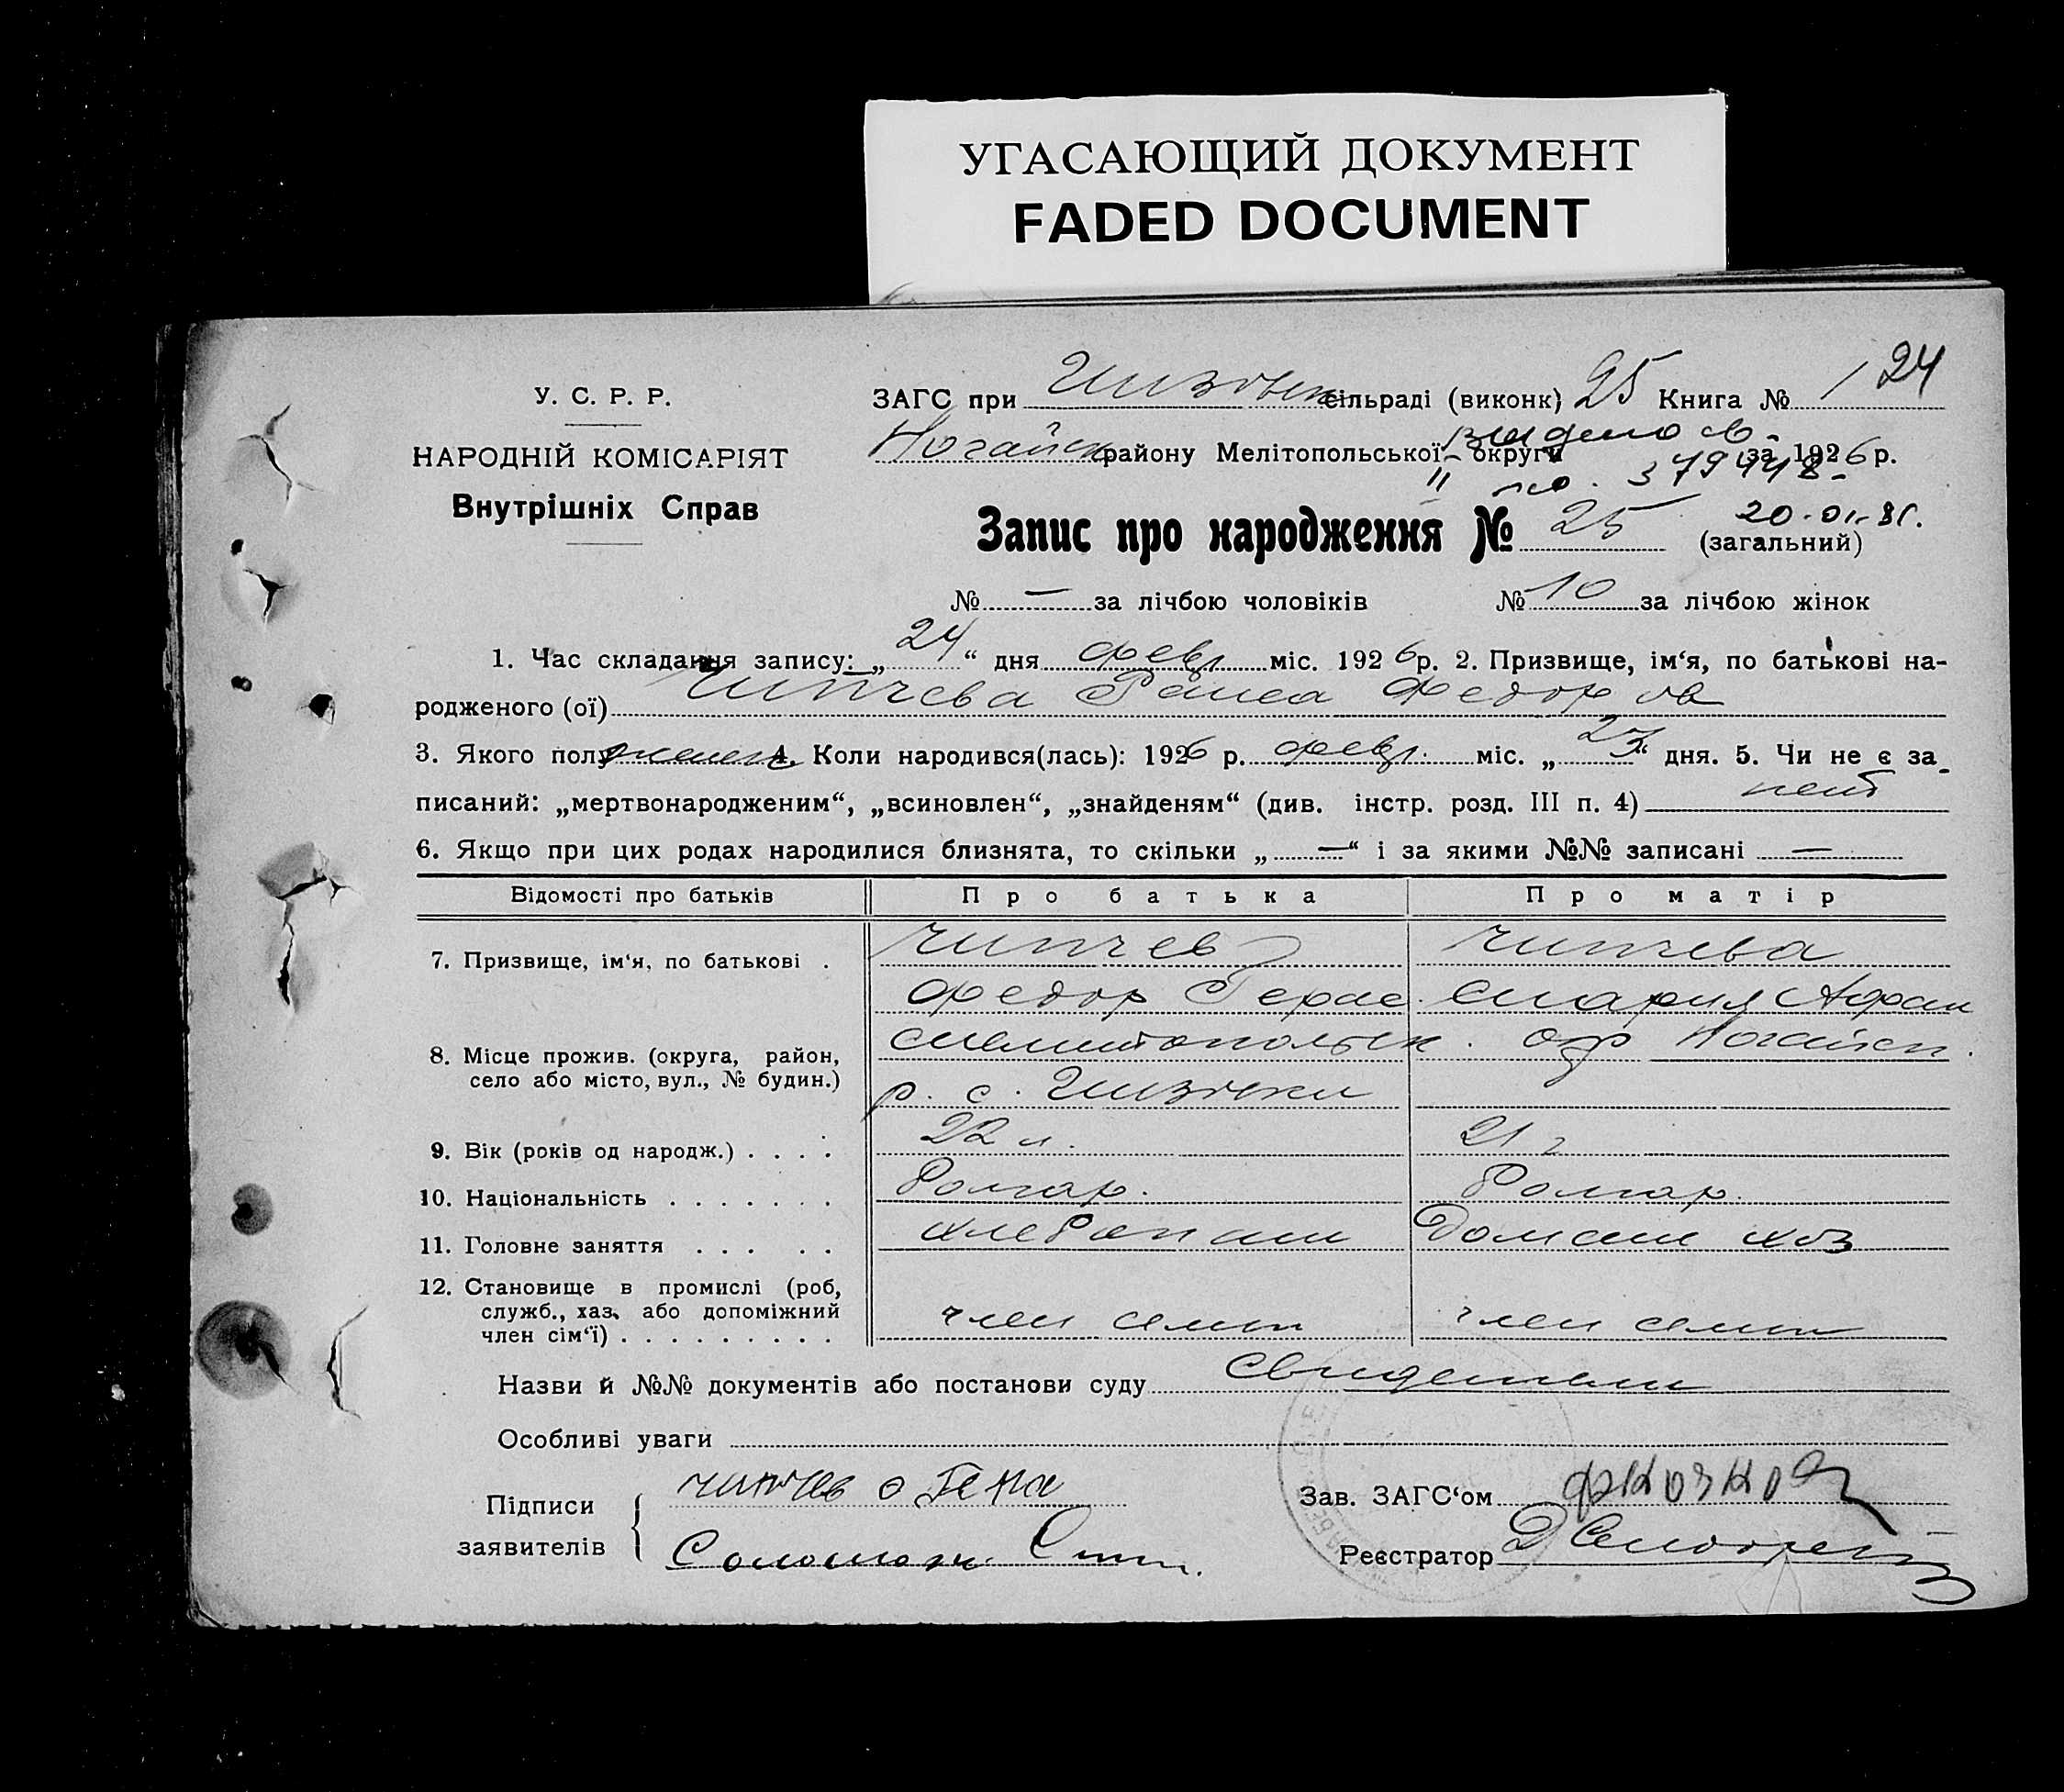 УГАСАЮЩИЙ ДОКУМЕНТ
FADED DOCUMENT
У. С. Р. Р.
НАРОДНІЙ КОМІСАРІЯТ
Внутрішніх Справ
ЗАГС при сільраді (виконк) 25 Книга № 1 24
Ногайск району Мелітопольської округи за 1926 р.
видано св.
II 379448
Запис про народження № 25 (загальний)
20.01.81.
№ — за лічбою чоловіків № 10 за лічбою жінок
1. Час складання запису: „24“ дня февр міс. 1926 р. 2. Призвище, ім‘я, по батькові на-
родженого (ої) Чипчева Раиса Федоров
3. Якого полу женск 4. Коли народився(лась): 1926 р. февр. міс. „23“ дня. 5. Чи не є за-
писаний: „мертвонародженим“, „всиновлен“, „знайденям“ (див. інстр. розд. III п. 4) нет
6. Якщо при цих родах народилися близнята, то скільки „—“ і за якими №№ записані —
Відомості про батьків Про батька Про матір
7. Призвище, ім‘я, по батькові . Чипчев Чипчева
Федор Герас. Мария Афан
8. Місце прожив. (округа, район, село або місто, вул., № будин.) Мелитопольск. окр Ногайск.
р. с.
9. Вік (років од народж.) . . . . 22 л. 21 г
10. Національність . . . . . . . Болгар. Болгар.
11. Головне заняття . . . . . хлебопаш Домаш хоз
12. Становище в промислі (роб, служб., хаз. або допоміжний член сім‘ї) . . . . . . . . . член семи член семи
Назви й №№ документів або постанови суду Свидетели
Особливі уваги
Підписи заявителів Чипчев
Зав. ЗАГС‘ом
Реєстратор